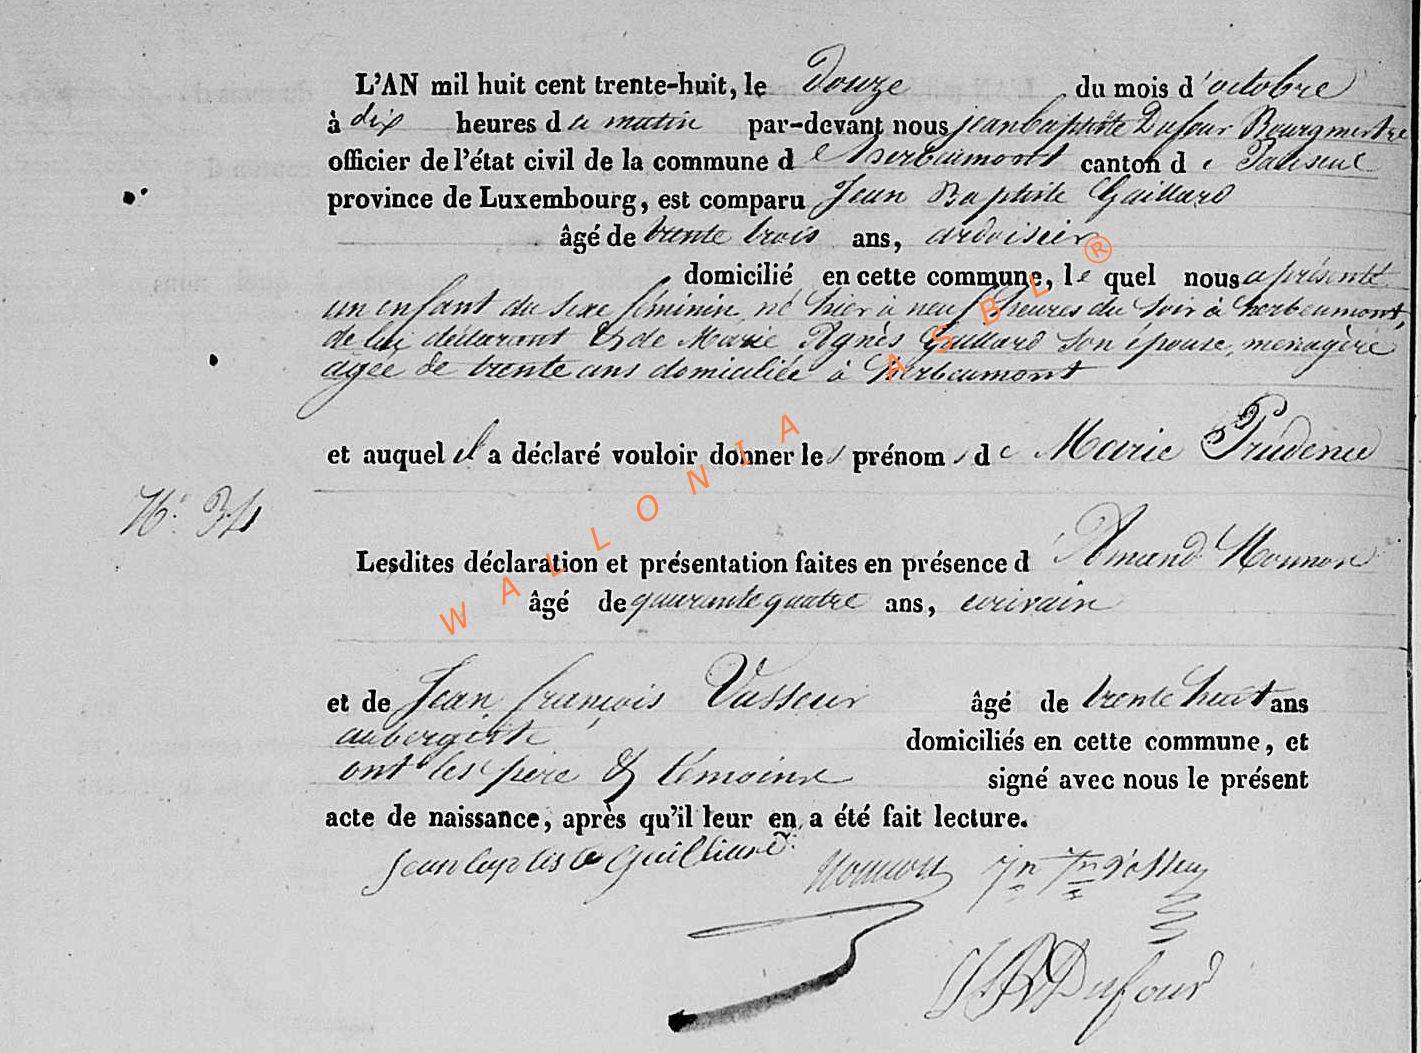 L'AN mil huit cent trente-huit, le douze du mois d'octobre
à dix heures du matin par-devant nous jean baptiste Dufour Bourgmestre
officier de l'état civil de la commune de herbeumont canton de Paliseul
province de Luxembourg, est comparu Jean Baptiste Gaillard
âgé de trente trois ans, ardoisier
domicilié en cette commune, lequel nous a présenté
un enfant du sexe féminin, né hier à neuf heures du soir à herbeumont,
de lui déclarant & de Marie Agnès Gaillard son épouse, menagère
agée de trente ans domiciliée à herbeumont
et auquel il a déclaré vouloir donner les prénoms de Marie Prudence
N° 34
Lesdites déclaration et présentation faites en présence d'Amand Nonnon
âgé de quarante quatre ans, ecrivain
et de Jean françois Vasseur âgé de trente huit ans
aubergiste domiciliés en cette commune, et
ont les père & témoins signé avec nous le présent
acte de naissance, après qu'il leur en a été fait lecture.
Jean baptiste Gailliard Nonnon Jn Fn Vasseur
J B Dufour
WALLONIA ASBL ®